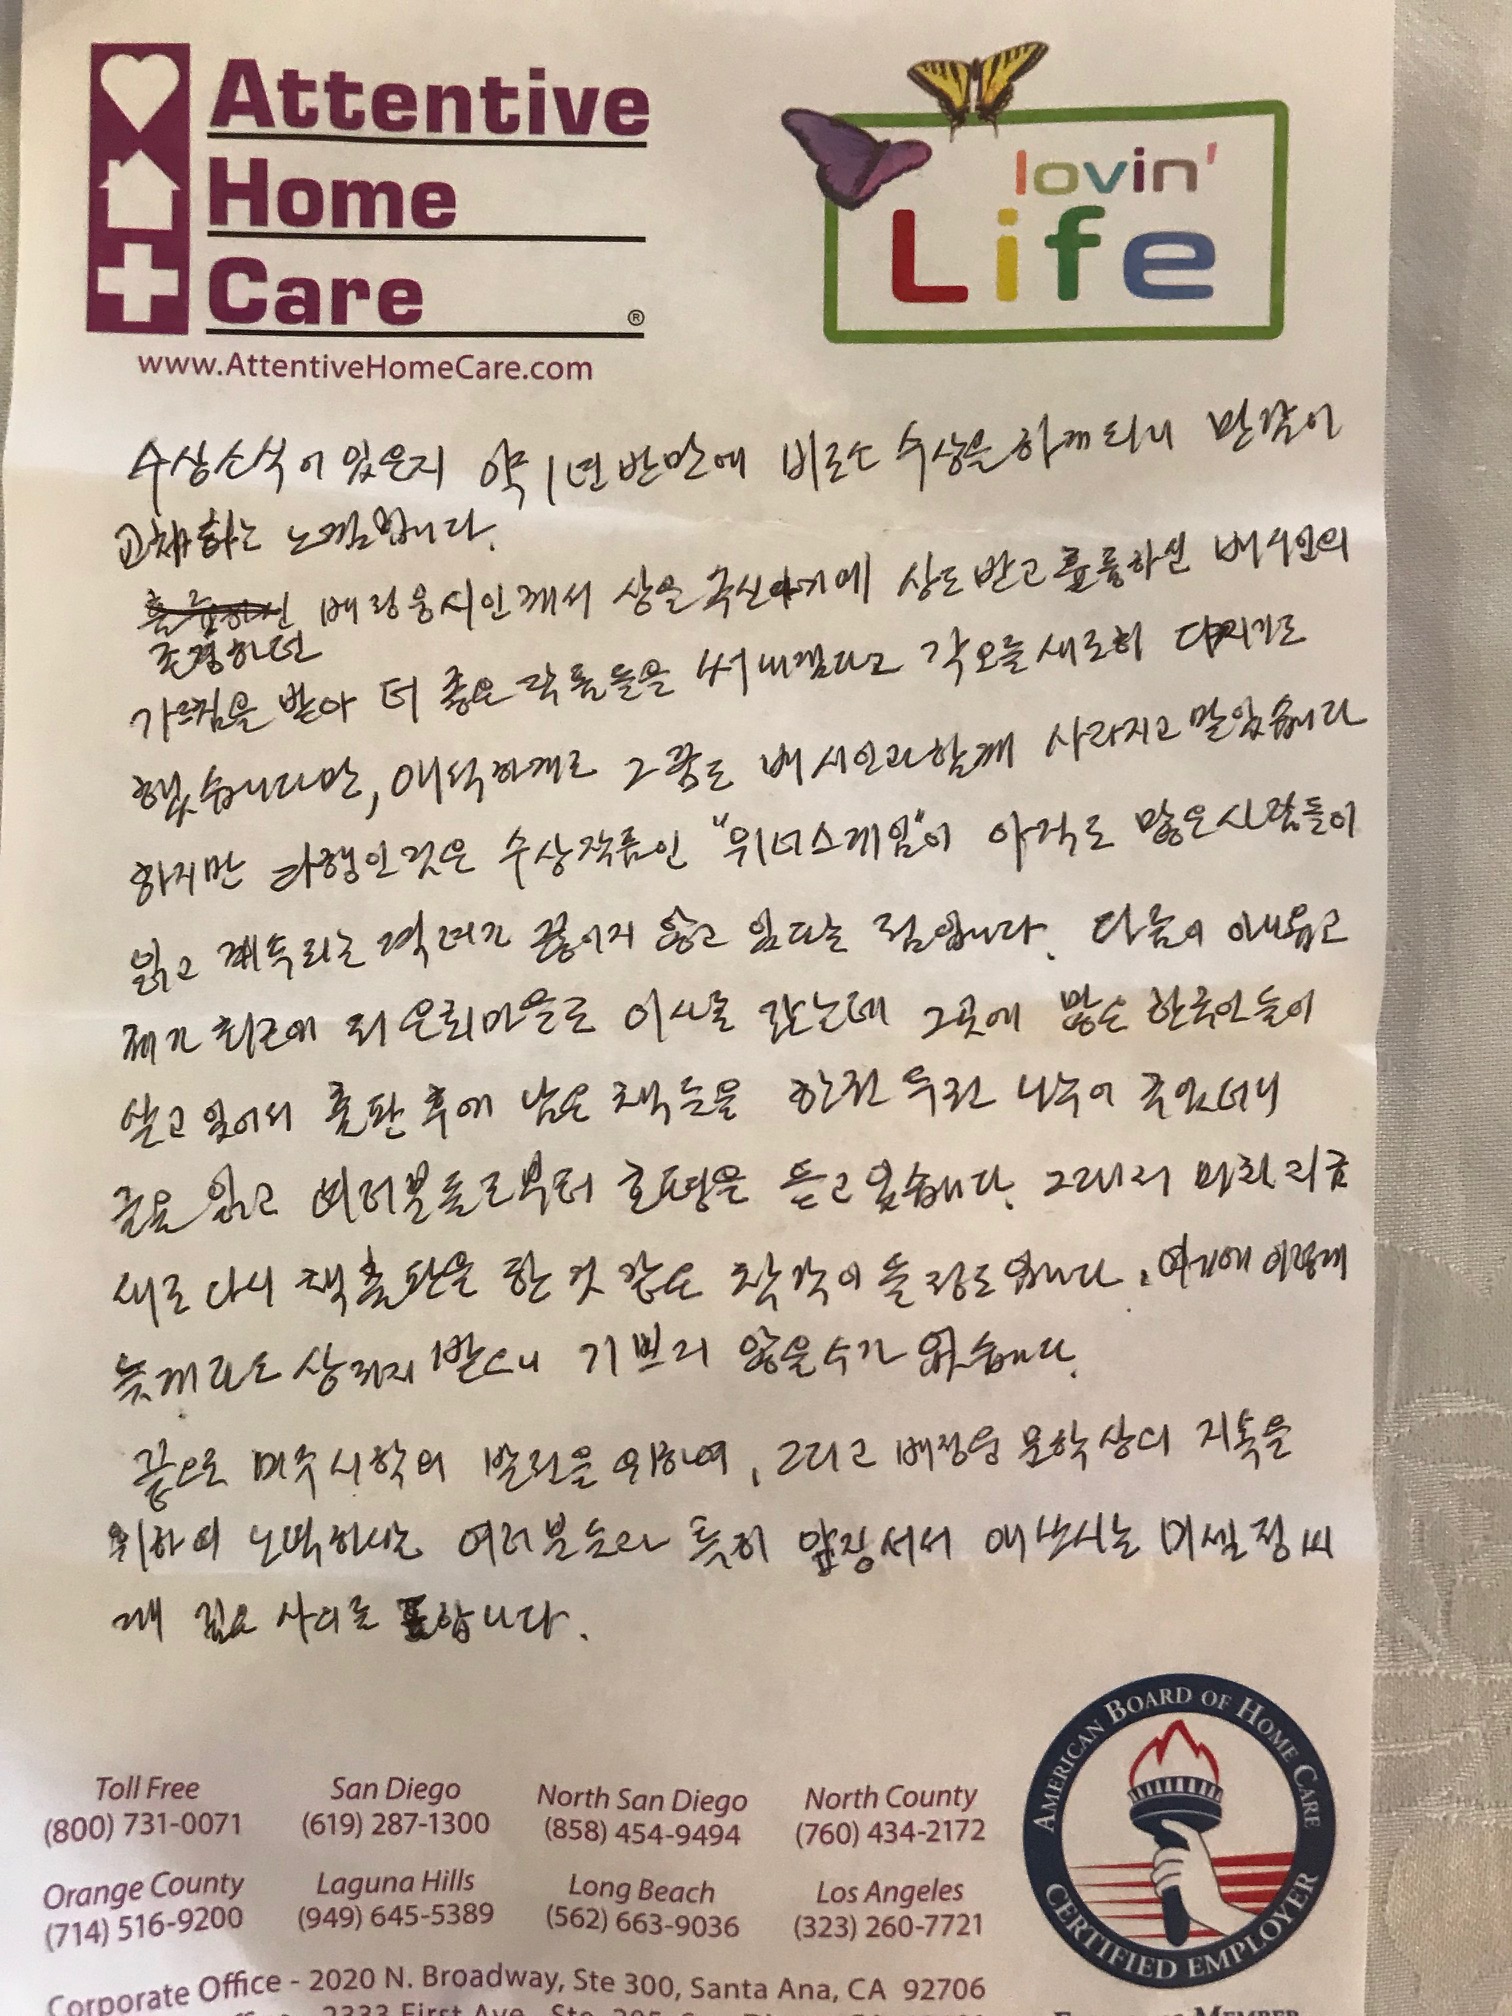 Attentive
Home
Care ®
www.AttentiveHomeCare.com
lovin'
Life
수상소식이 있은지 약 1년 반만에 비로소 수상을 하게되니 만감이
교체하는 느낌입니다.
훌륭하신 배정웅시인께서 상을 주신다기에 상도받고 훌륭하신 배시인의
존경하던
가르침을 받아 더 좋은 작품들을 써내겠다고 각오를 새로히 다지기도
했습니다만, 애석하게도 그 꿈도 배시인과 함께 사라지고 말았습니다
하지만 다행인것은 수상작품인 "위너스게임"이 아직도 많은사람들이
읽고 계속되는 격려가 끊이지 않고 있다는 점입니다. 다름이 아니옵고
제가 최근에 은퇴마을로 이사를 갔는데 그곳에 많은 한국인들이
살고 있어서 출판 후에 남은 책들을 한권 두권 나누어 주었더니
글을 읽고 여러분들로부터 호평을 듣고 있습니다. 그래서 마치 지금
새로 다시 책출판을 한 것 같은 착각이 들 정도입니다. 여기에 이렇게
늦게라도 상까지 받으니 기쁘지 않을수가 없습니다.
끝으로 미주시학의 발전을 위하여, 그리고 배정웅 문학상의 지속을
위하여 노력하시는 여러분들과 특히 앞장서서 애쓰시는 미셸정 씨
께 깊은 사의를 표합니다.
Toll Free San Diego North San Diego North County
(800) 731-0071 (619) 287-1300 (858) 454-9494 (760) 434-2172
Orange County Laguna Hills Long Beach Los Angeles
(714) 516-9200 (949) 645-5389 (562) 663-9036 (323) 260-7721
Corporate Office - 2020 N. Broadway, Ste 300, Santa Ana, CA 92706
2333 First Ave
AMERICAN BOARD OF HOME CARE
CERTIFIED EMPLOYER